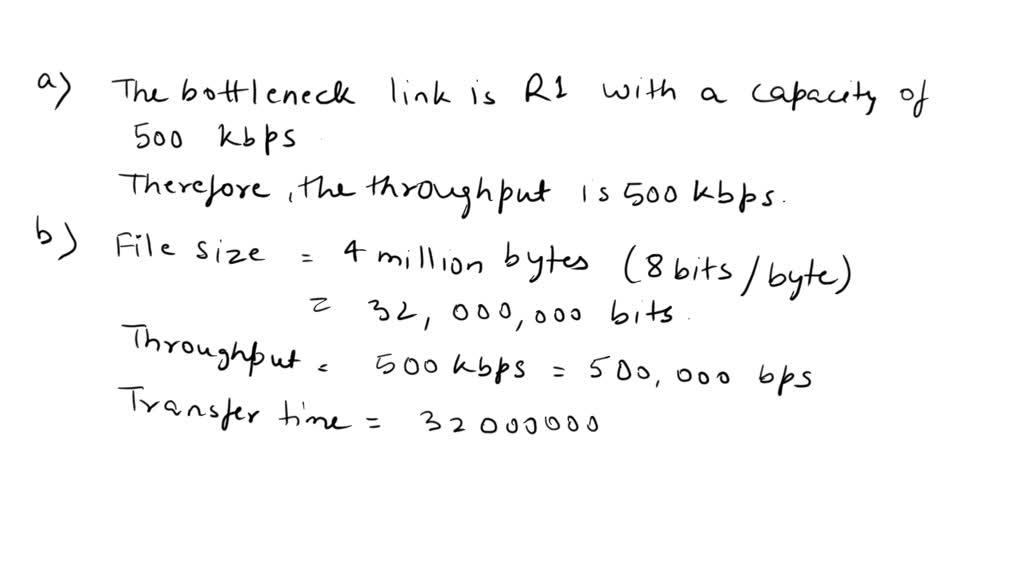 a) The bottleneck link is R1 with a capacity of
500 kbps
Therefore, the throughput is 500 kbps.
b) File size = 4 million bytes (8 bits/byte)
= 32,000,000 bits.
Throughput = 500 kbps = 500,000 bps
Transfer time = 32000000